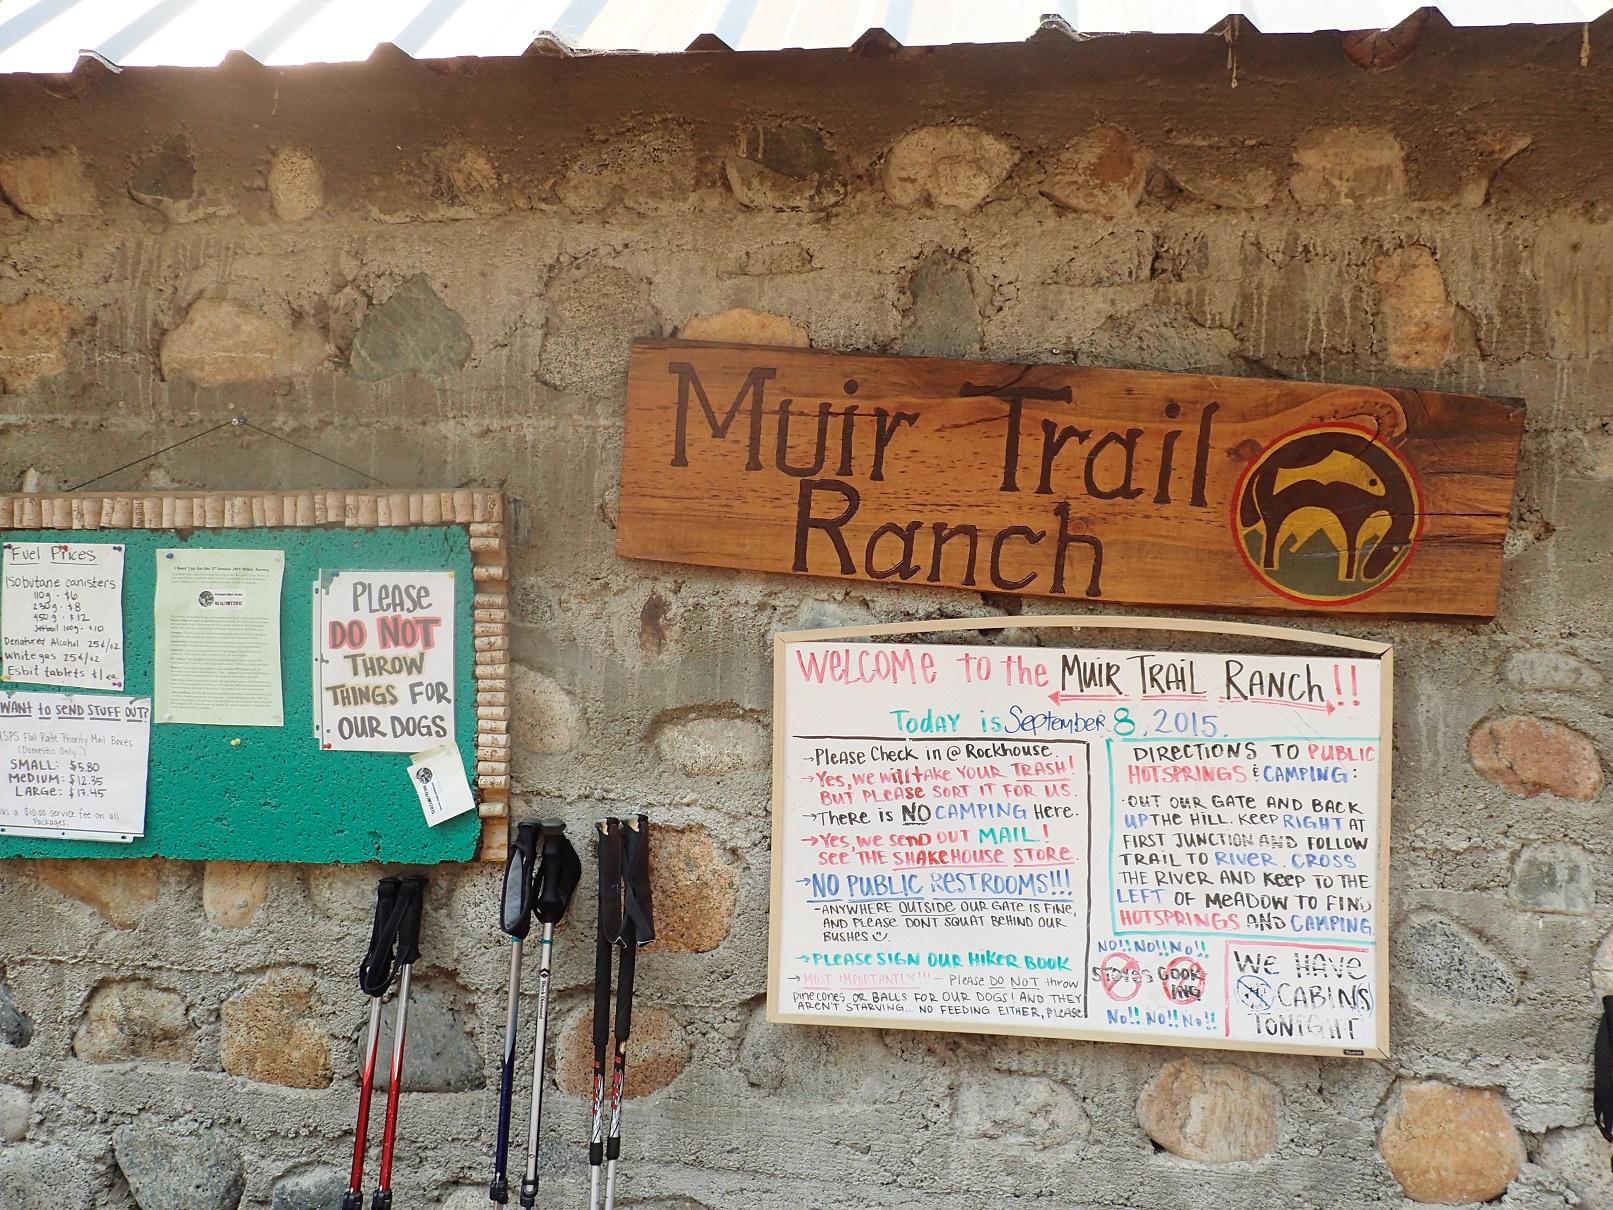 Muir Trail
Ranch
Fuel Prices
Isobutane canisters
110g - $6
230g - $8
450g - $12
Jetboil 100g - $10
Denatured Alcohol 25¢/oz
white gas 25¢/oz
Esbit tablets $1 ea.
WANT to SEND STUFF OUT?
USPS Flat Rate Priority Mail Boxes
(Domestic Only...)
SMALL: $5.80
MEDIUM: $12.35
LARGE: $17.45
a $10.00 service fee on all
Packages.
I Need You for the 2nd Annual JMT Hiker Survey
PLEASE
DO NOT
THROW
THINGS FOR
OUR DOGS
WELCOME to the MUIR TRAIL RANCH!!
TODAY is September 8, 2015.
→Please Check in @ Rockhouse.
→Yes, we will take YOUR TRASH!
BUT PLEASE SORT IT FOR US.
→There is NO CAMPING Here.
→Yes, we send OUT MAIL!
SEE THE SHAKEHOUSE STORE.
→NO PUBLIC RESTROOMS!!!
-ANYWHERE OUTSIDE OUR GATE IS FINE,
AND PLEASE DON'T SQUAT BEHIND OUR
BUSHES
→PLEASE SIGN OUR HIKER BOOK
→MOST IMPORTANTLY!!! - Please DO NOT throw
pinecones OR BALLS FOR OUR DOGS! AND THEY
AREN'T STARVING... NO FEEDING EITHER, PLEASE
DIRECTIONS TO PUBLIC
HOTSPRINGS & CAMPING:
·OUT OUR GATE AND BACK
UP THE HILL. KEEP RIGHT AT
FIRST JUNCTION AND FOLLOW
TRAIL TO RIVER. CROSS
THE RIVER AND KEEP TO THE
LEFT OF MEADOW TO FIND
HOTSPRINGS AND CAMPING.
NO!! NO!! No!!
STOVES COOK
ING
No!! No!! No!!
WE HAVE
CABINS
TONIGHT